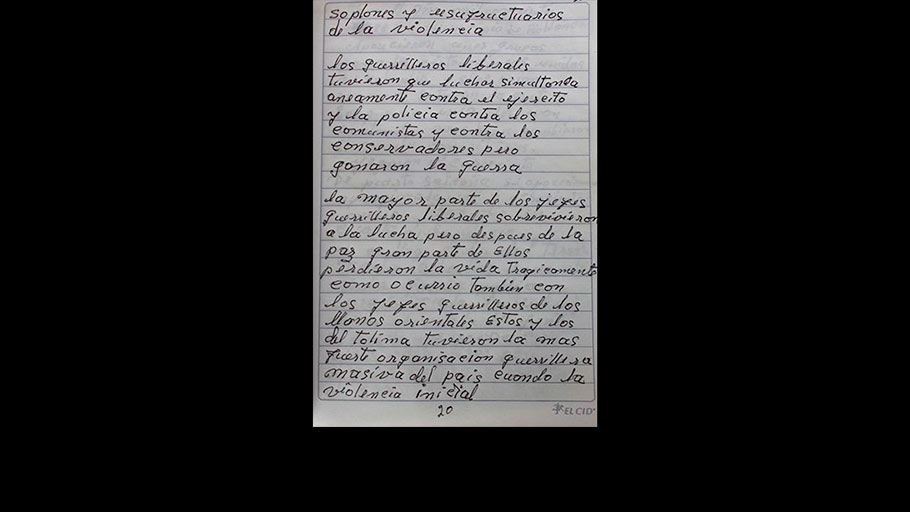 soplones y usufructuarios
de la violencia
los guerrilleros liberales
tuvieron que luchar simultanea
aneamente contra el ejercito
y la policia contra los
comunistas y contra los
conservadores pero
ganaron la guerra
la mayor parte de los jefes
guerrilleros liberales sobrevivieron
a la lucha pero despues de la
paz gran parte de Ellos
perdieron la vida tragicamente
como ocurrio tambien con
los jefes guerrilleros de los
llanos orientales Estos y los
del tolima tuvieron la mas
fuerte organisacion guerrillera
masiva del pais cuando la
violencia inicial
20
EL CID